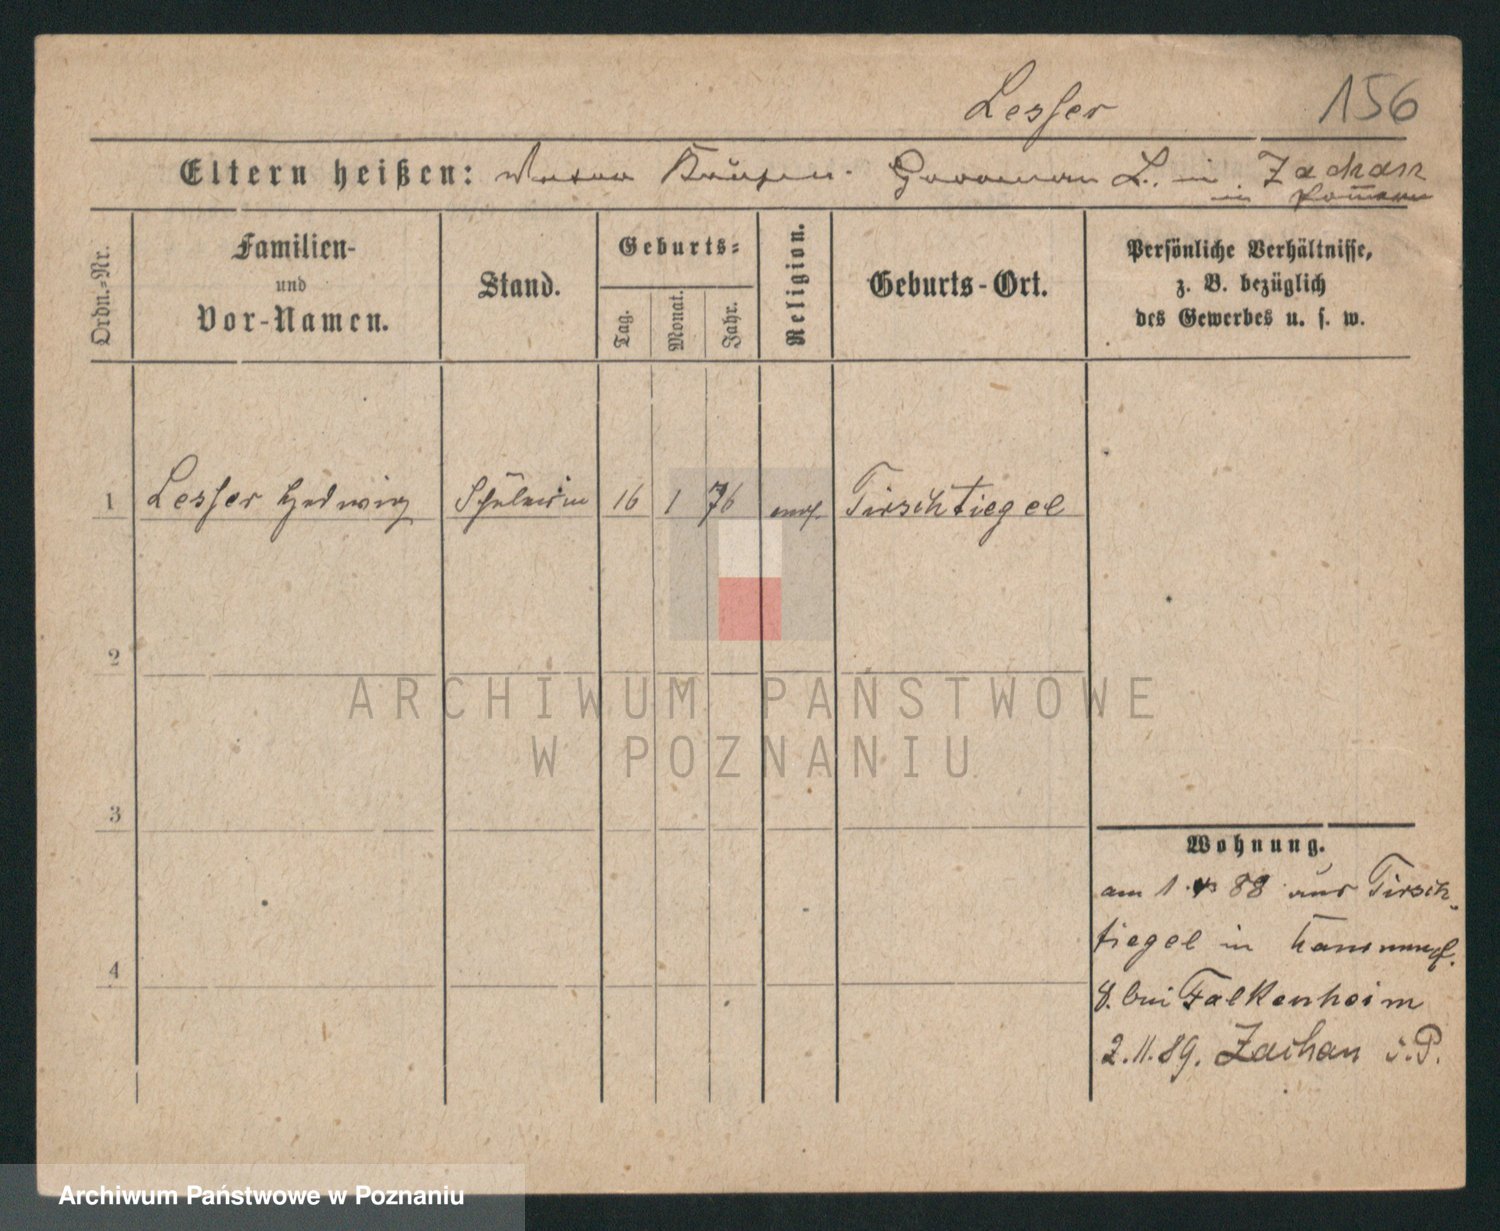 Lesser 156
Eltern heißen: L. in Zachan
in Pommern
Ordn.-Nr.
Familien-
und
Vor-Namen.
Stand.
Geburts-
Tag.
Monat.
Jahr.
Religion.
Geburts-Ort.
Persönliche Verhältnisse,
z. B. bezüglich
des Gewerbes u. s. w.
1 Lesser Hedwig Schülerin 16 1 76 Tirschtiegel
2
3
4
Wohnung.
am 1. 88 aus Tirsch-
tiegel in
8. bei Falkenheim
2.11.89. Zachan i. P.
ARCHIWUM PAŃSTWOWE
W POZNANIU
Archiwum Państwowe w Poznaniu